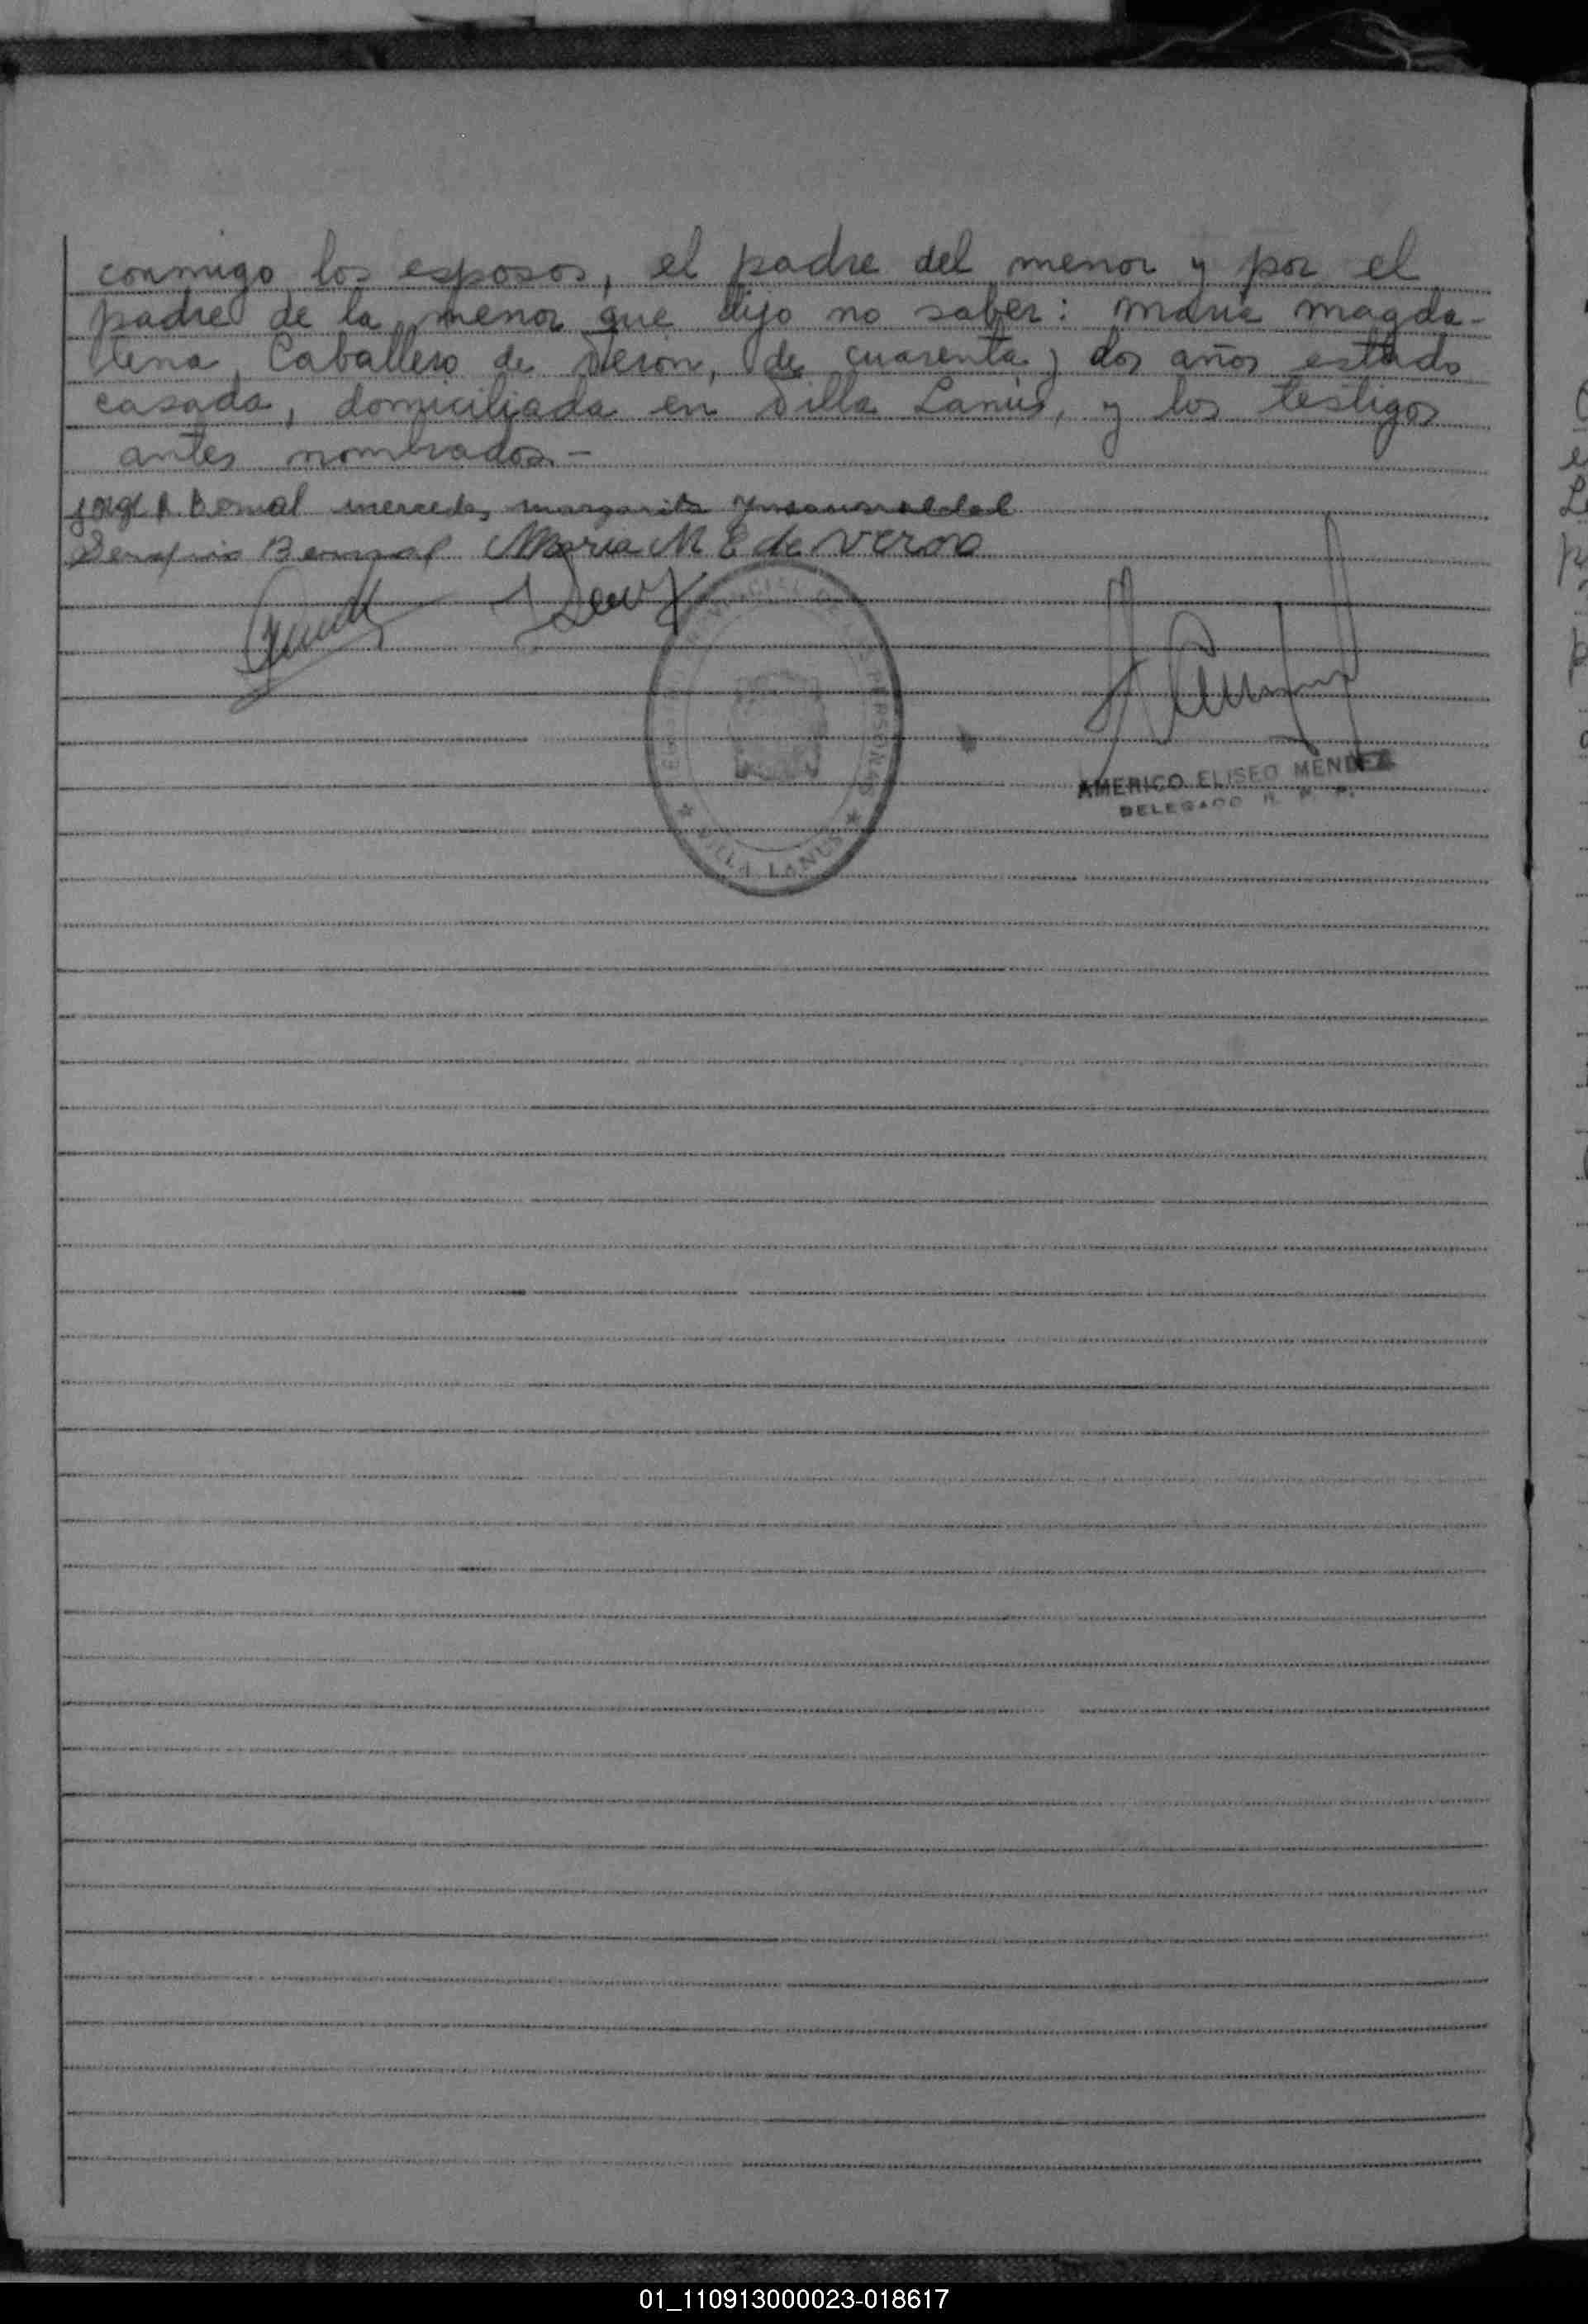 conmigo los esposos, el padre del menor y por el
padre de la menor que dijo no saber: maria magda-
lena Caballero de Veron, de cuarenta y dos años estado
casada, domiciliada en Villa Lanús, y los testigos
antes nombrados.-
Jorge R. Bernal mercedes margarita Ynsaurralde
Serafin Bernal Maria M C de Veron
PERSONAS
★ VILLA LANUS ★
AMERICO ELISEO MENDEZ
DELEGADO R. P.
01_110913000023-018617